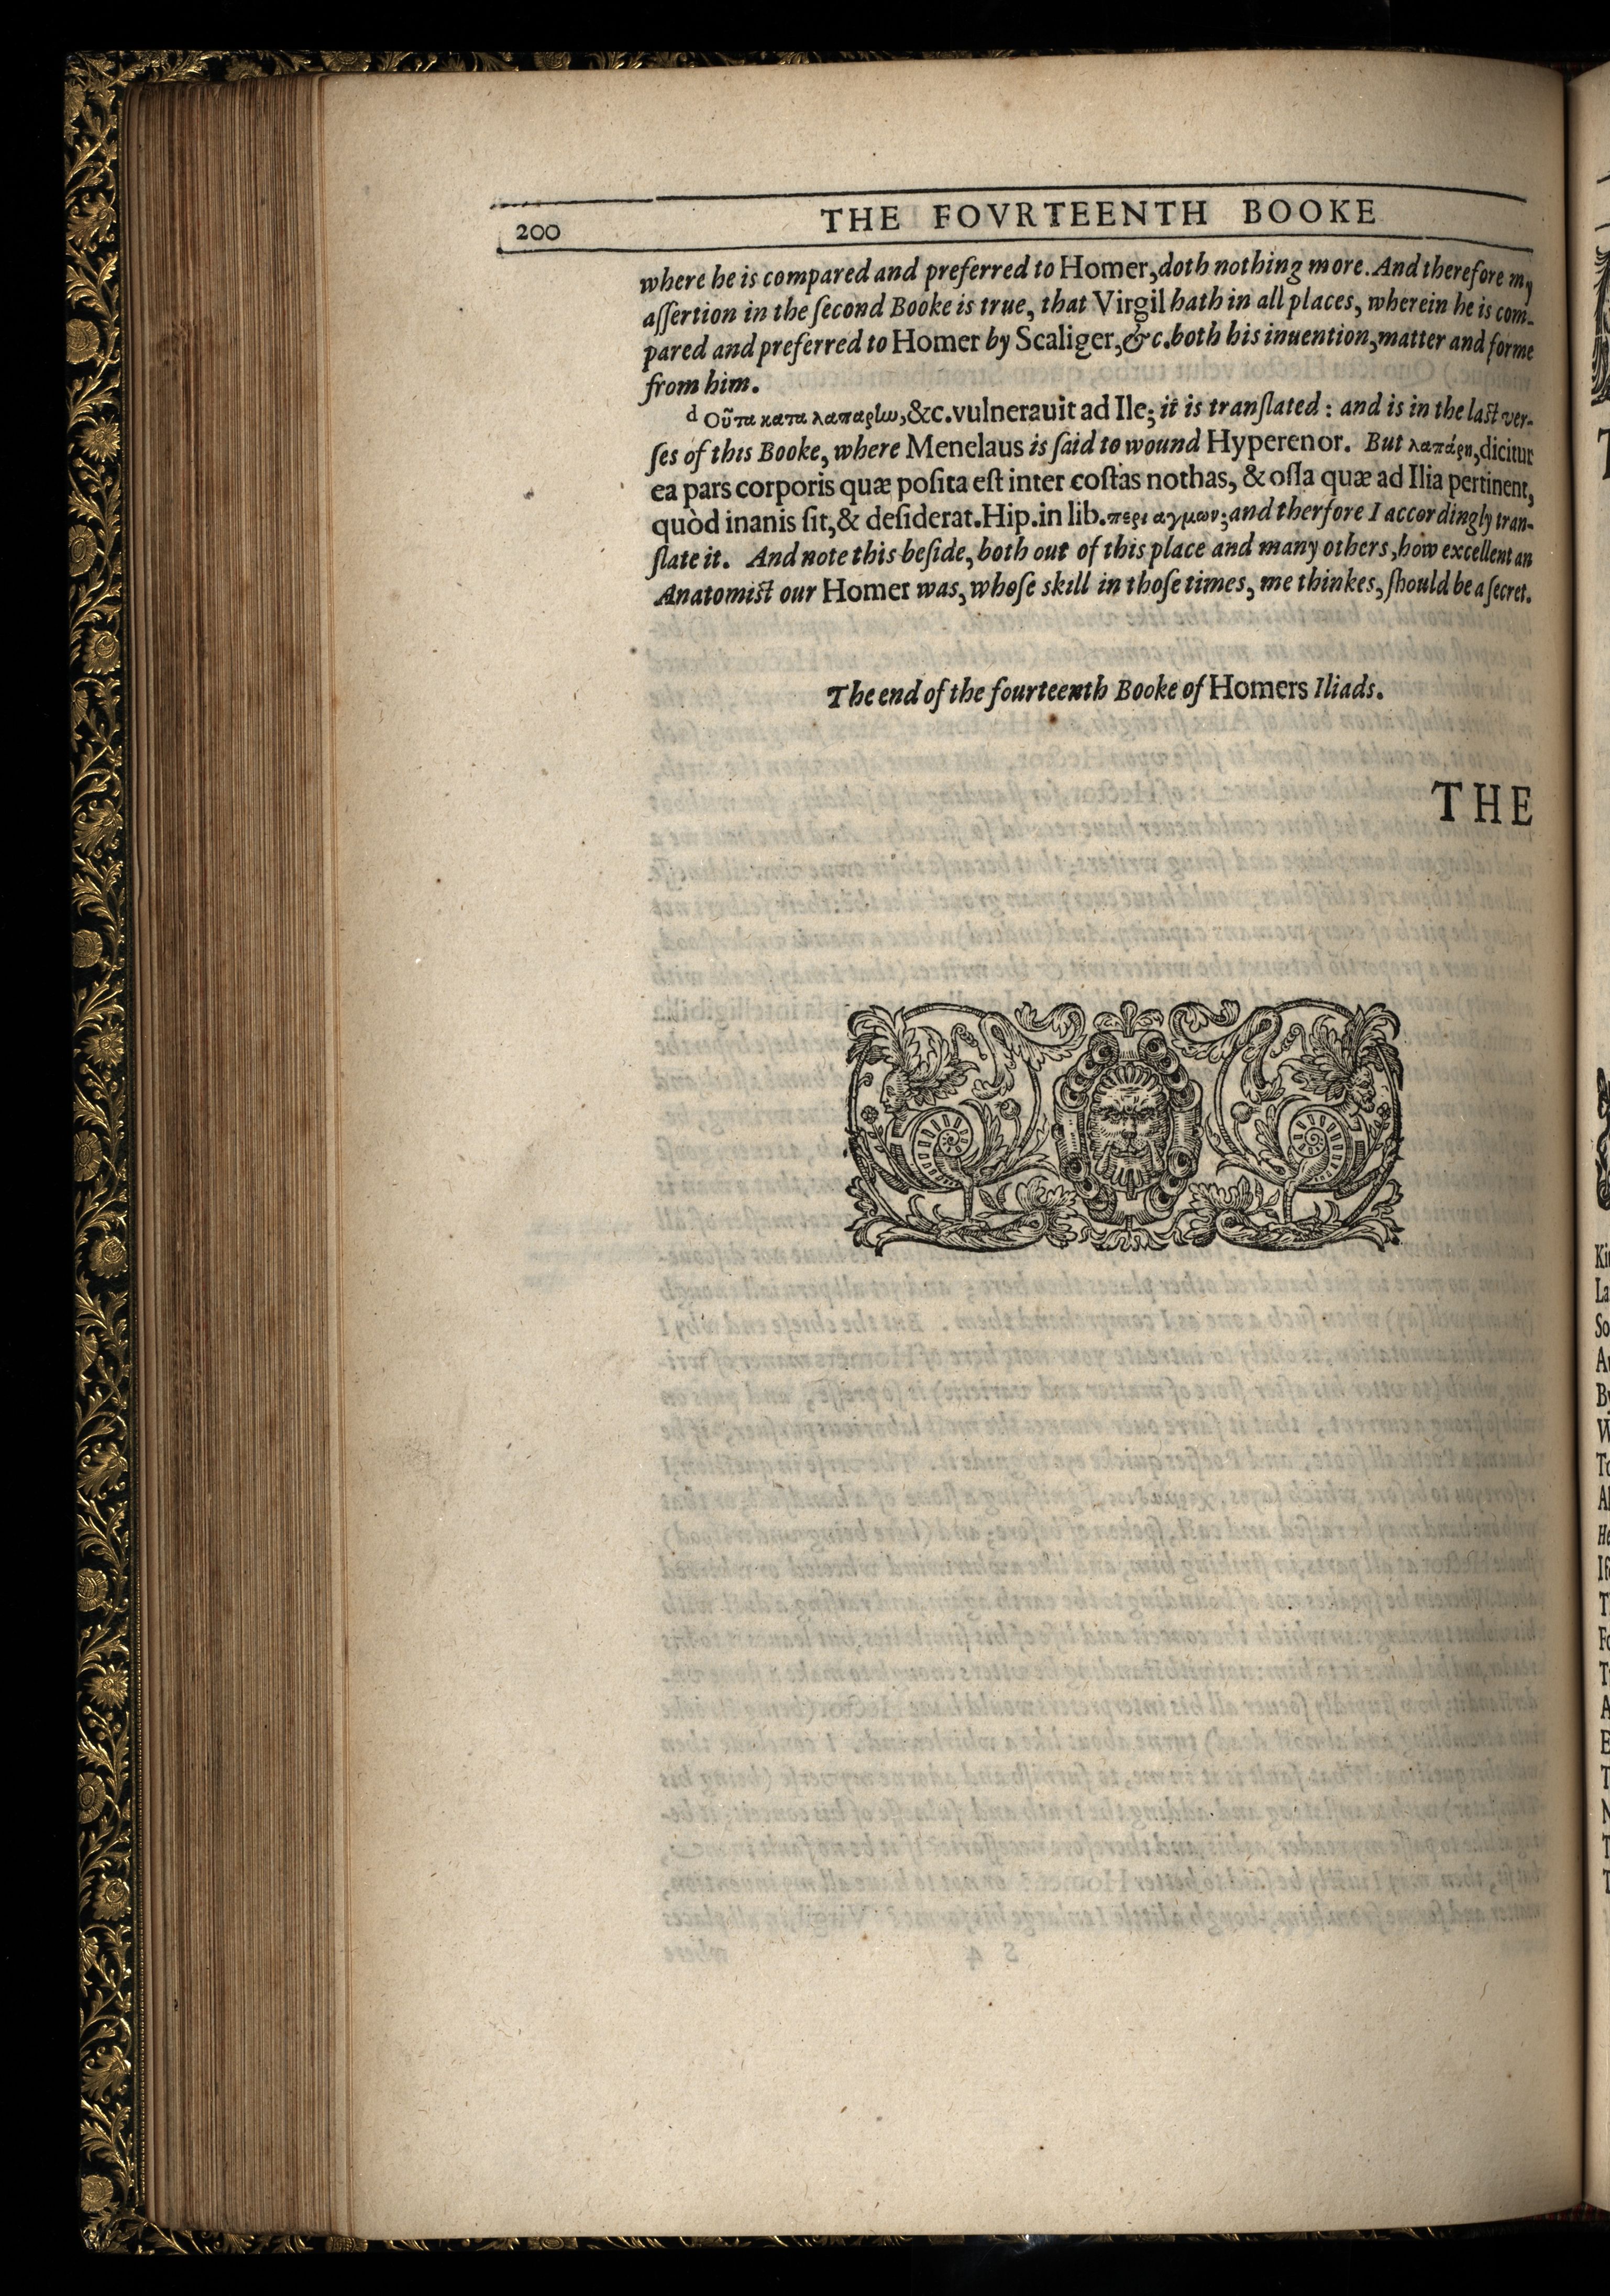 200
THE FOVRTEENTH BOOKE
where he is compared and preferred to Homer, doth nothing more. And therefore my
aſſertion in the ſecond Booke is true, that Virgil hath in all places, wherein he is com-
pared and preferred to Homer by Scaliger, &c. both his inuention, matter and forme
from him.
d Οὖτα κατα λαπαρlω, &c. vulnerauit ad Ile; it is tranſlated : and is in the laſt ver-
ſes of this Booke, where Menelaus is ſaid to wound Hyperenor. But λαπάρη, dicitur
ea pars corporis quæ poſita eſt inter coſtas nothas, & oſſa quæ ad Ilia pertinent,
quòd inanis ſit, & deſiderat. Hip. in lib. περι αγμων; and therfore I accordingly tran-
ſlate it. And note this beſide, both out of this place and many others, how excellent an
Anatomiſt our Homer was, whoſe skill in thoſe times, me thinkes, ſhould be a ſecret.
The end of the fourteenth Booke of Homers Iliads.
THE